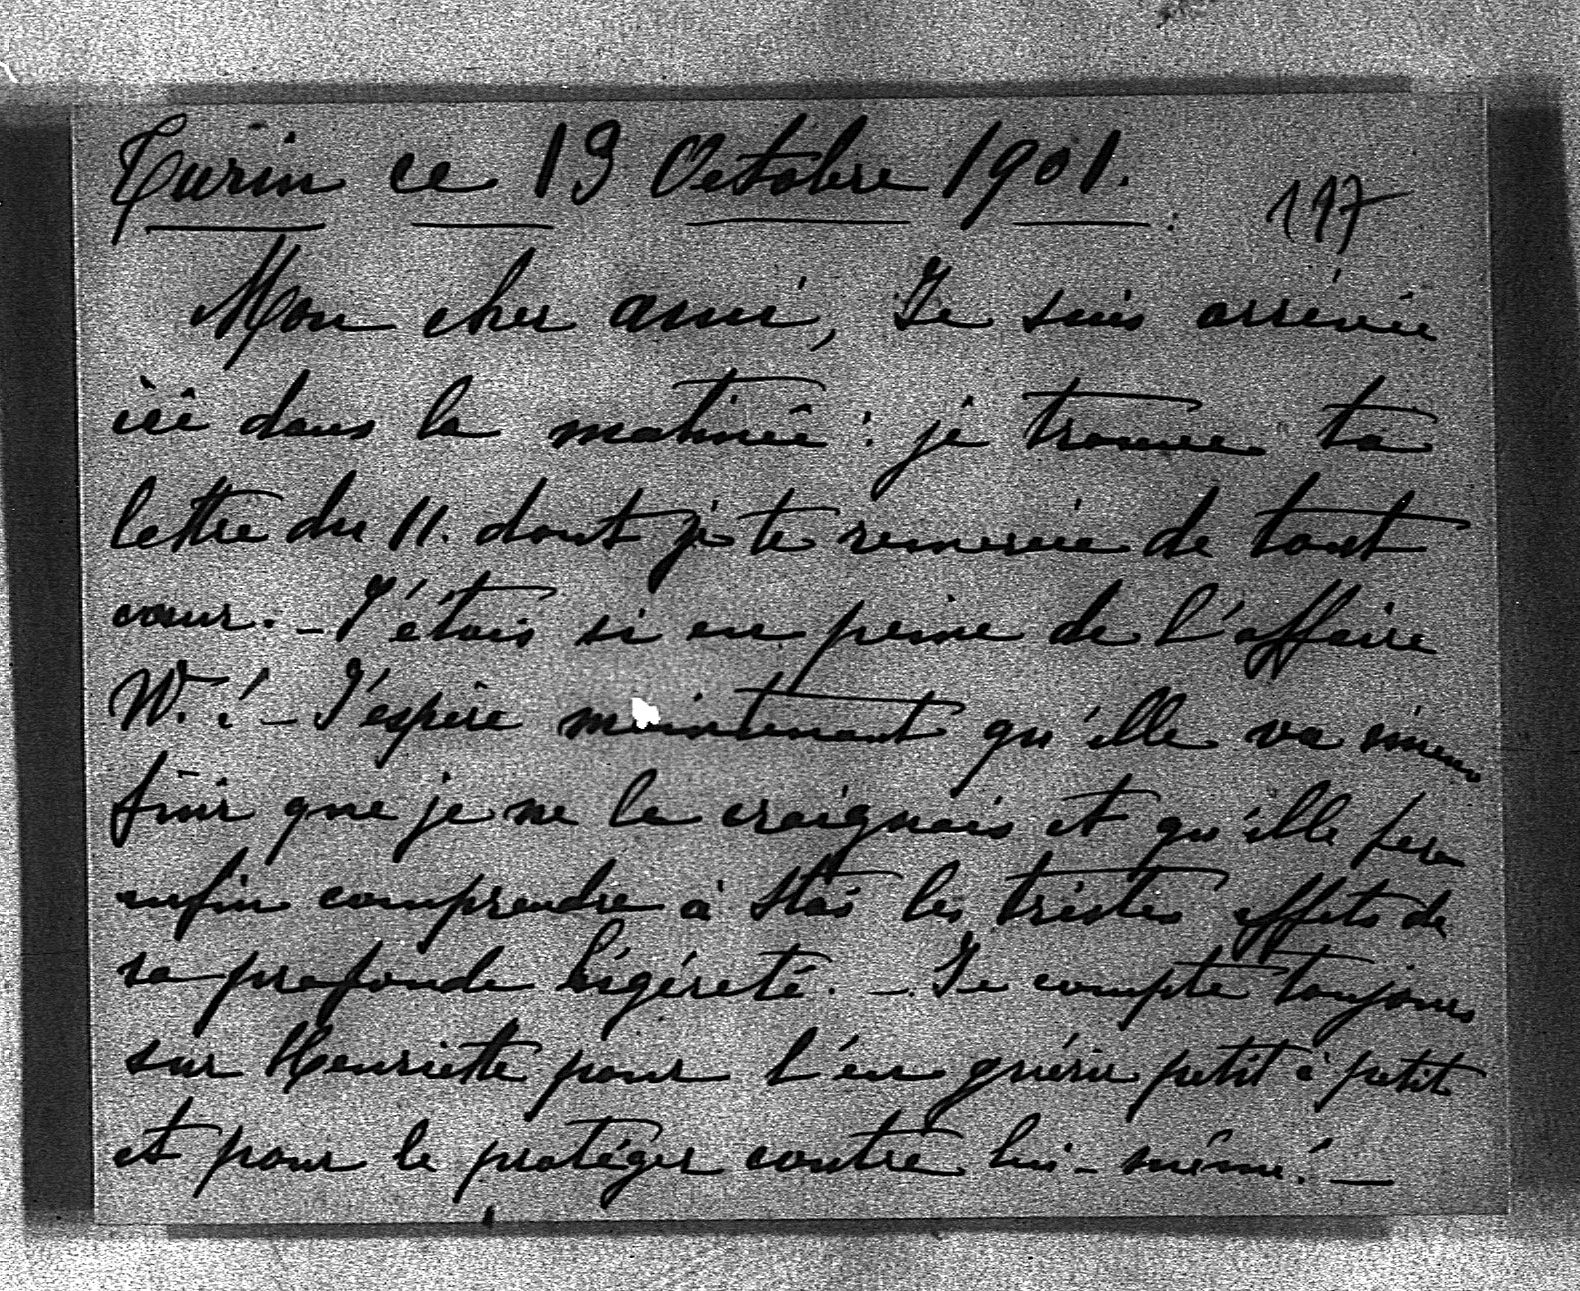 Turin ce 13 Octobre 1901.
197
Mon cher ami, Je suis arrivée
ici dans la matinée : je trouve ta
lettre du 11. dont je te remercie de tout
cœur. - J'étais si en peine de l'affaire
W. ! - J'espère maintenant qu'elle va mieux
finir que je ne le craignais et qu'elle fera
enfin comprendre à Stas les tristes effets de
sa profonde légéreté. - Je compte toujours
sur Henriette pour l'en guérir petit à petit
et pour le protéger contre lui-même! -